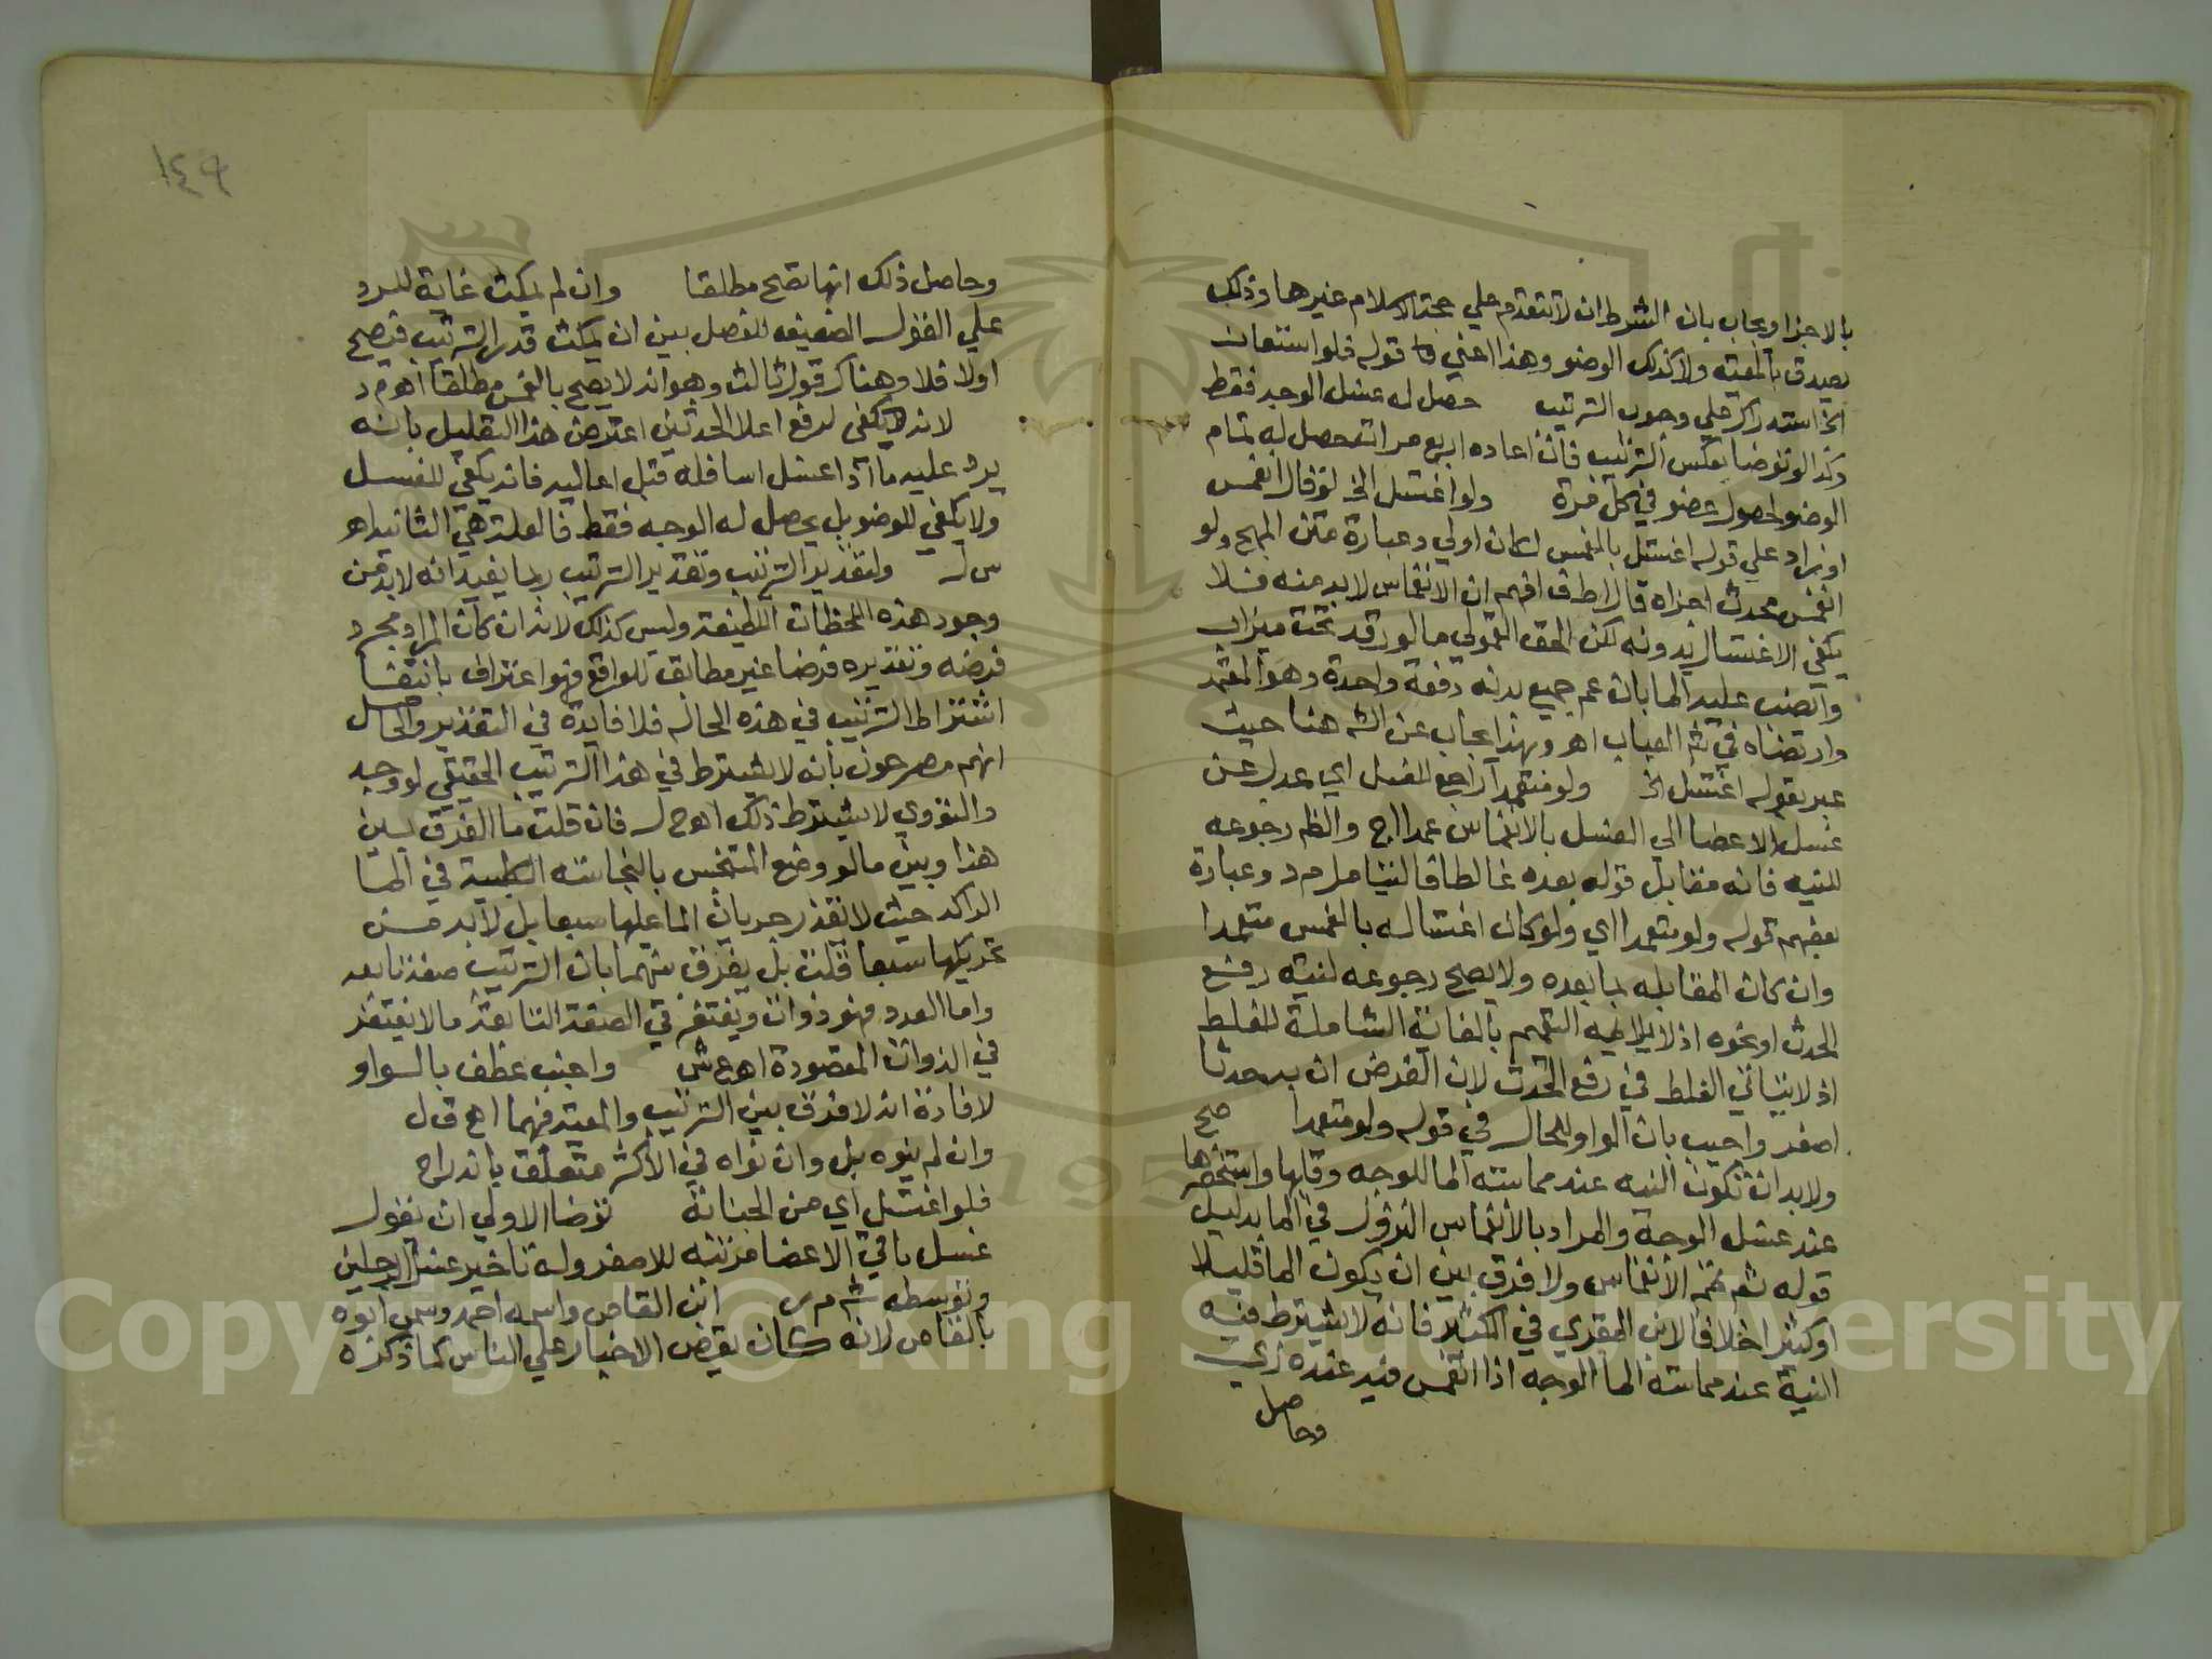 بالاجزا ويجاب بان الشرط ان لا تتقدم علي حجة الاسلام غيرها وذلك
يصدق بالمعية ولا كذلك الوضو وهذا اعني قوله فلو استعان
الخ استدراك علي وجوب الترتيب حصل له غسل الوجه فقط
وكذا لو توضا بعكس الترتيب فان اعاده اربع مرات حصل له تمام
الوضو لحصول عضو في كل مرة ولو اغتسل الخ لو قال انغمس
او زاد علي قوله اغتسل بالغمس لكان اولي وعبارة متن المنهج ولو
انغمس محدث اجزاه قال اط ف افهم ان الانغماس لا بد منه فلا
يكفي الاغتسال بدونه لكن الحق القمولي ما لو رقد تحت ميزاب
وانصب عليه الما بان عم جميع بدنه دفعة واحدة وهو المعتمد
وارتضاه في شرح العباب اهـ وبهذا يجاب عن الشـ هنا حيث
عبر بقوله اغتسل الخ ولو متعمدا راجع للغسل اي عدل عن
غسل الاعضا الي الغسل بالانغماس عمدا اج والظم رجوعه
للنيه فانه مقابل قوله بعده غالطا فالنيتامل م د وعبارة
بعضهم قوله ولو متعمدا اي ولو كان اغتساله بالغمس متعمدا
وان كان المقابله لما بعده ولا يصح رجوعه لنية رفع
الحدث او نحوه اذ لا يلايمه التعميم بالغاية الشاملة للغلط
اذ لا يتاتي الغلط في رفع الحدث لان الفرض ان به حدثا
اصغر واجيب بان الواو للحال في قوله ولو متعمدا صح
ولا بد ان تكون النيه عند مماسته الما للوجه وقلبها واستحضرها
عند غسل الوجه والمراد بالانغماس النزول في الما بدليل
قوله ثم تمم الانغماس ولا فرق بين ان يكون الما قليلا
او كثيرا خلافا لابن المقري في الكثير فانه لا يشترط فيه
النية عند مماسته الما الوجه اذا انغمس فيه عنده زي
وحاصل
١٤٩
وحاصل ذلك انها تصح مطلقا وان لم يمكث غاية للرد
علي القول الضعيفه المفصل بين ان يمكث قدر الترتيب فيصح
اولا فلا وهناك قول ثالث وهو انه لا يصح بالغمس مطلقا اهـ م د
لانه يكفي لرفع اعلا الحدثين اعترض هذا التعليل بانه
يرد عليه ما اذا غسل اسافله قبل اعاليه فانه يكفي للغسل
ولا يكفي للوضو بل يحصل له الوجه فقط فالعلة هي الثانيه اهـ
س ل ولتقدير الترتيب وتقدير الترتيب ربما يفيد انه لا بد من
وجود هذه اللحظات اللطيفة وليس كذلك لانه ان كان المراد مجرد
فرضه وتقديره فرضا غير مطابق للواقع فهو اعتراف بانتفا
اشتراط الترتيب في هذه الحاله فلا فايدة في التقدير والحاصل
انهم مصرحون بانه لا يشترط في هذا الترتيب الحقيقي لو وجد
والنووي لا يشترط ذلك اهـ ح ل فان قلت ما الفرق بين
هذا وبين ما لو وضع المتنجس بالنجاسة الكلبية في الما
الراكد حيث لا نقدر جريان الما عليها سبعا بل لا بد من
تحريكها سبعا قلت بل يفرق بينهما بان الترتيب صفة تابعه
واما العدد فهو ذوات ويغتفر في الصفة التابعة ما لا يغتفر
في الذوات المقصودة اهـ ع ش واجنب عطف بالواو
لافادة انه لا فرق بين الترتيب والمعية فيهما اهـ ق ل
وان لم ينوه بل وان نواه في الاكثر متعلق باندراج
فلو اغتسل اي من الجنابة توضا الاولي ان نقول
غسل باقي الاعضا مرتبه للاصغر وله تاخير غسل الرجلين
وتوسطه شـ م ر ابن القاص واسمه احمد وسمي ابوه
بالقاص لانه كان يقص الاخبار علي الناس كما ذكره